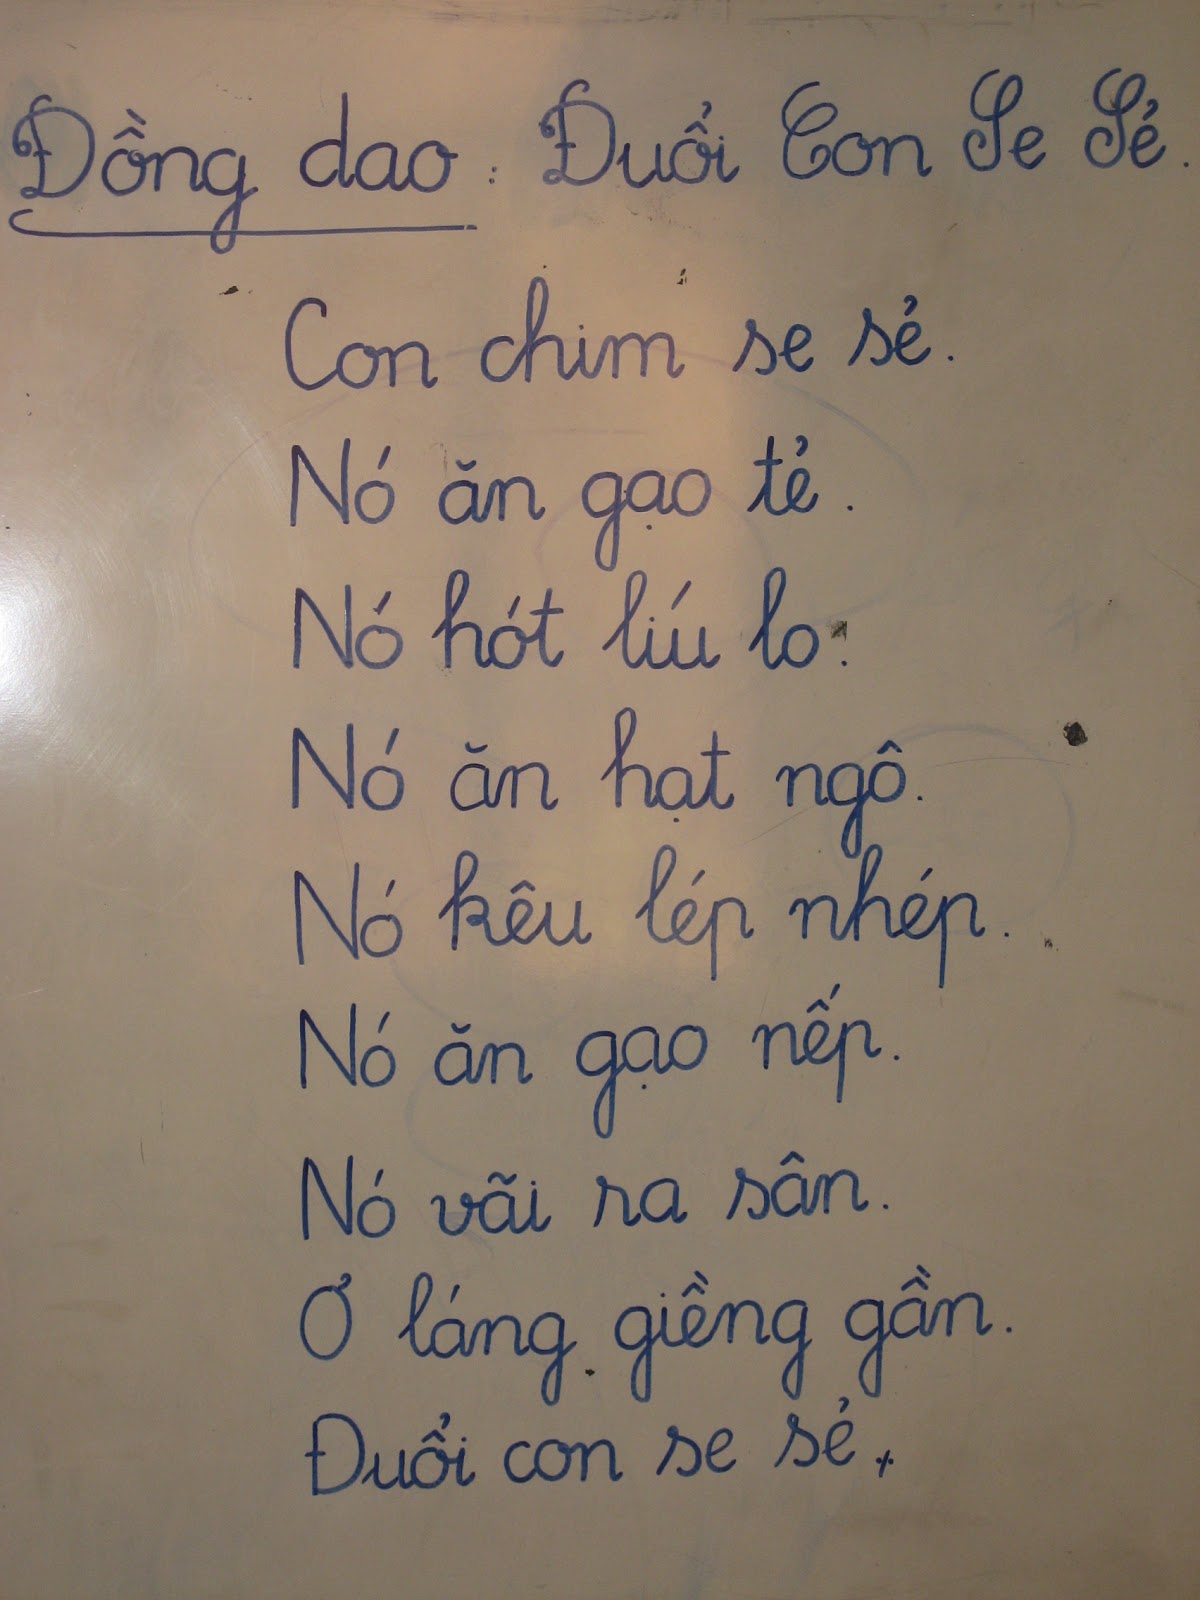 Đồng dao : Đuổi Con Se Sẻ.
Con chim se sẻ.
Nó ăn gạo tẻ.
Nó hót líu lo.
Nó ăn hạt ngô.
Nó kêu lép nhép.
Nó ăn gạo nếp.
Nó vãi ra sân.
Ơ láng giềng gần.
Đuổi con se sẻ.